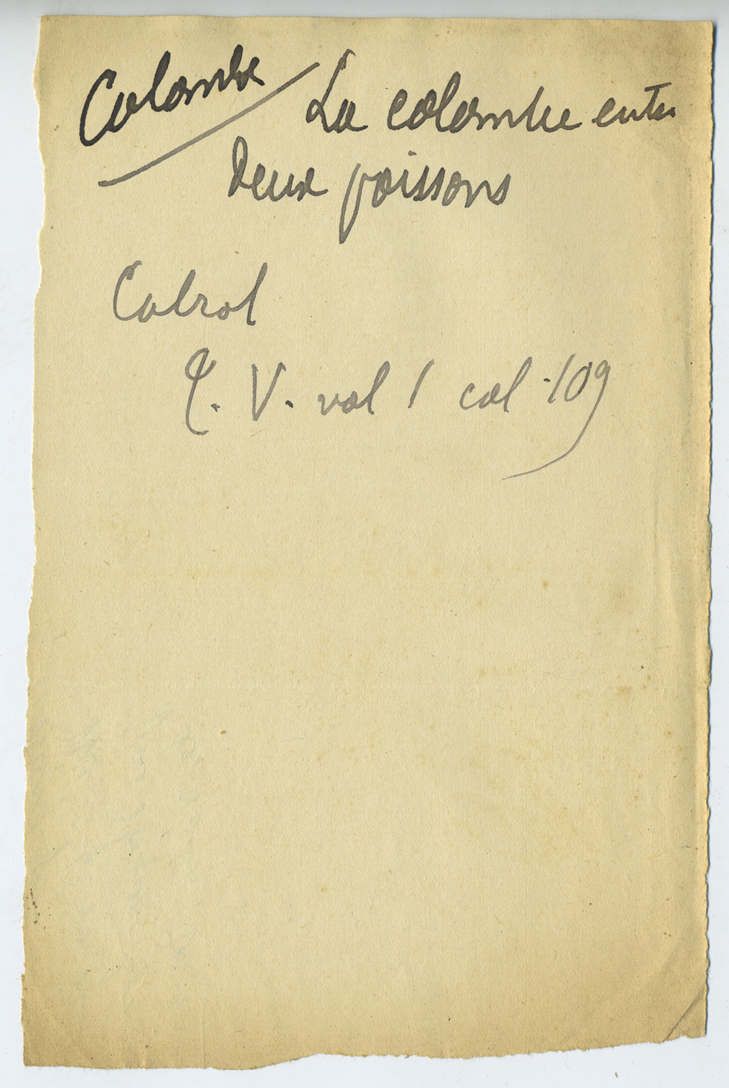 Colombe / La colombe entre
deux poissons
Cabrol
T. V. vol 1 col. 109